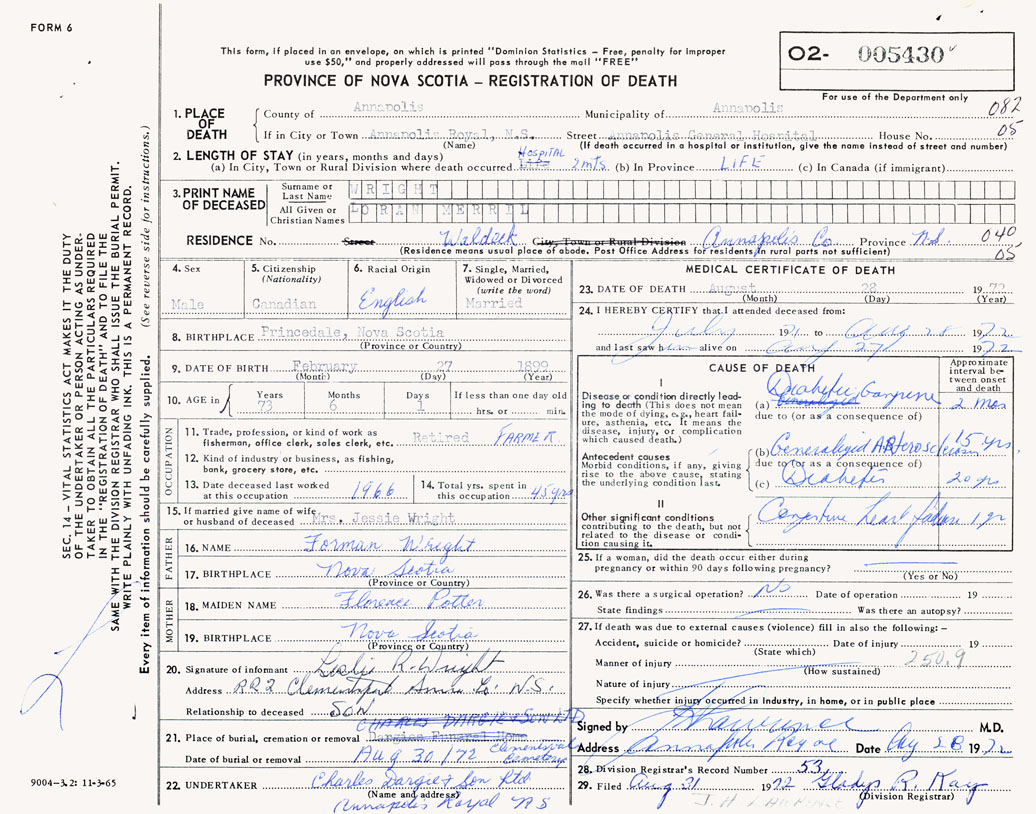 FORM 6
This form, if placed in an envelope, on which is printed "Dominion Statistics – Free, penalty for improper
use $50," and properly addressed will pass through the mail "FREE"
PROVINCE OF NOVA SCOTIA – REGISTRATION OF DEATH
O2- 005430
For use of the Department only
082
05
SEC. 14 – VITAL STATISTICS ACT MAKES IT THE DUTY
OF THE UNDERTAKER OR PERSON ACTING AS UNDER-
TAKER TO OBTAIN ALL THE PARTICULARS REQUIRED
IN THE "REGISTRATION OF DEATH" AND TO FILE THE
SAME WITH THE DIVISION REGISTRAR WHO SHALL ISSUE THE BURIAL PERMIT.
WRITE PLAINLY WITH UNFADING INK. THIS IS A PERMANENT RECORD.
Every item of information should be carefully supplied. (See reverse side for instructions.)
1. PLACE OF DEATH
County of Annapolis Municipality of Annapolis
If in City or Town Annapolis Royal, N.S. Street Annapolis General Hospital House No.
(Name) (If death occurred in a hospital or institution, give the name instead of street and number)
2. LENGTH OF STAY (in years, months and days)
(a) In City, Town or Rural Division where death occurred Hospital Life 2 mts. (b) In Province LIFE (c) In Canada (if immigrant)
3. PRINT NAME OF DECEASED
Surname or Last Name WRIGHT
All Given or Christian Names LORAN MERRIL
RESIDENCE No. Street Waldeck City, Town or Rural Division Annapolis Co. Province N.S. 040
(Residence means usual place of abode. Post Office Address for residents in rural parts not sufficient) 05
4. Sex
Male
5. Citizenship (Nationality)
Canadian
6. Racial Origin
English
7. Single, Married, Widowed or Divorced (write the word)
Married
8. BIRTHPLACE Princedale, Nova Scotia
(Province or Country)
9. DATE OF BIRTH February 27 1899
(Month) (Day) (Year)
10. AGE in Years 73 Months 6 Days 1 If less than one day old hrs. or min.
OCCUPATION
11. Trade, profession, or kind of work as
fisherman, office clerk, sales clerk, etc. Retired FARMER
12. Kind of industry or business, as fishing,
bank, grocery store, etc.
13. Date deceased last worked at this occupation 1966
14. Total yrs. spent in this occupation 45 yrs
15. If married give name of wife
or husband of deceased Mrs. Jessie Wright
FATHER
16. NAME Forman Wright
17. BIRTHPLACE Nova Scotia
(Province or Country)
MOTHER
18. MAIDEN NAME Florence Potter
19. BIRTHPLACE Nova Scotia
(Province or Country)
20. Signature of informant Leslie R. Wright
Address RR2 Clementsport Anna Co. N.S.
Relationship to deceased SON
CHARLES DARGIE & SON LTD
21. Place of burial, cremation or removal Dargies Funeral Home Clementsvale Cemetery
Date of burial or removal Aug 30/72
22. UNDERTAKER Charles Dargie & Son Ltd
(Name and address)
Annapolis Royal NS
9004–3.2: 11-3-65
MEDICAL CERTIFICATE OF DEATH
23. DATE OF DEATH August 28 1972
(Month) (Day) (Year)
24. I HEREBY CERTIFY that I attended deceased from:
July 1971 to Aug 28 1972
and last saw him alive on Aug 27 1972
CAUSE OF DEATH
Approximate interval between onset and death
I
Disease or condition directly lead-
ing to death (This does not mean
the mode of dying, e.g., heart fail-
ure, asthenia, etc. It means the
disease, injury, or complication
which caused death.)
(a) Diabetic Gangrene 2 mos
due to (or as a consequence of)
Antecedent causes
Morbid conditions, if any, giving
rise to the above cause, stating
the underlying condition last.
(b) Generalized Arterosclerosis 15 yrs
due to (or as a consequence of)
(c) Diabetes 20 yrs
II
Other significant conditions
contributing to the death, but not
related to the disease or condi-
tion causing it.
Congestive heart failure 1 yr
25. If a woman, did the death occur either during
pregnancy or within 90 days following pregnancy?
(Yes or No)
26. Was there a surgical operation? No Date of operation 19
State findings Was there an autopsy?
27. If death was due to external causes (violence) fill in also the following: –
Accident, suicide or homicide? Date of injury 19
(State which) 250.9
Manner of injury
(How sustained)
Nature of injury
Specify whether injury occurred in industry, in home, or in public place
Signed by Lawrence M.D.
Address Annapolis Royal Date Aug 28 1972
28. Division Registrar's Record Number 53
29. Filed Aug 31 1972 Gladys R. Kay
(Division Registrar)
J. H. LAWRENCE